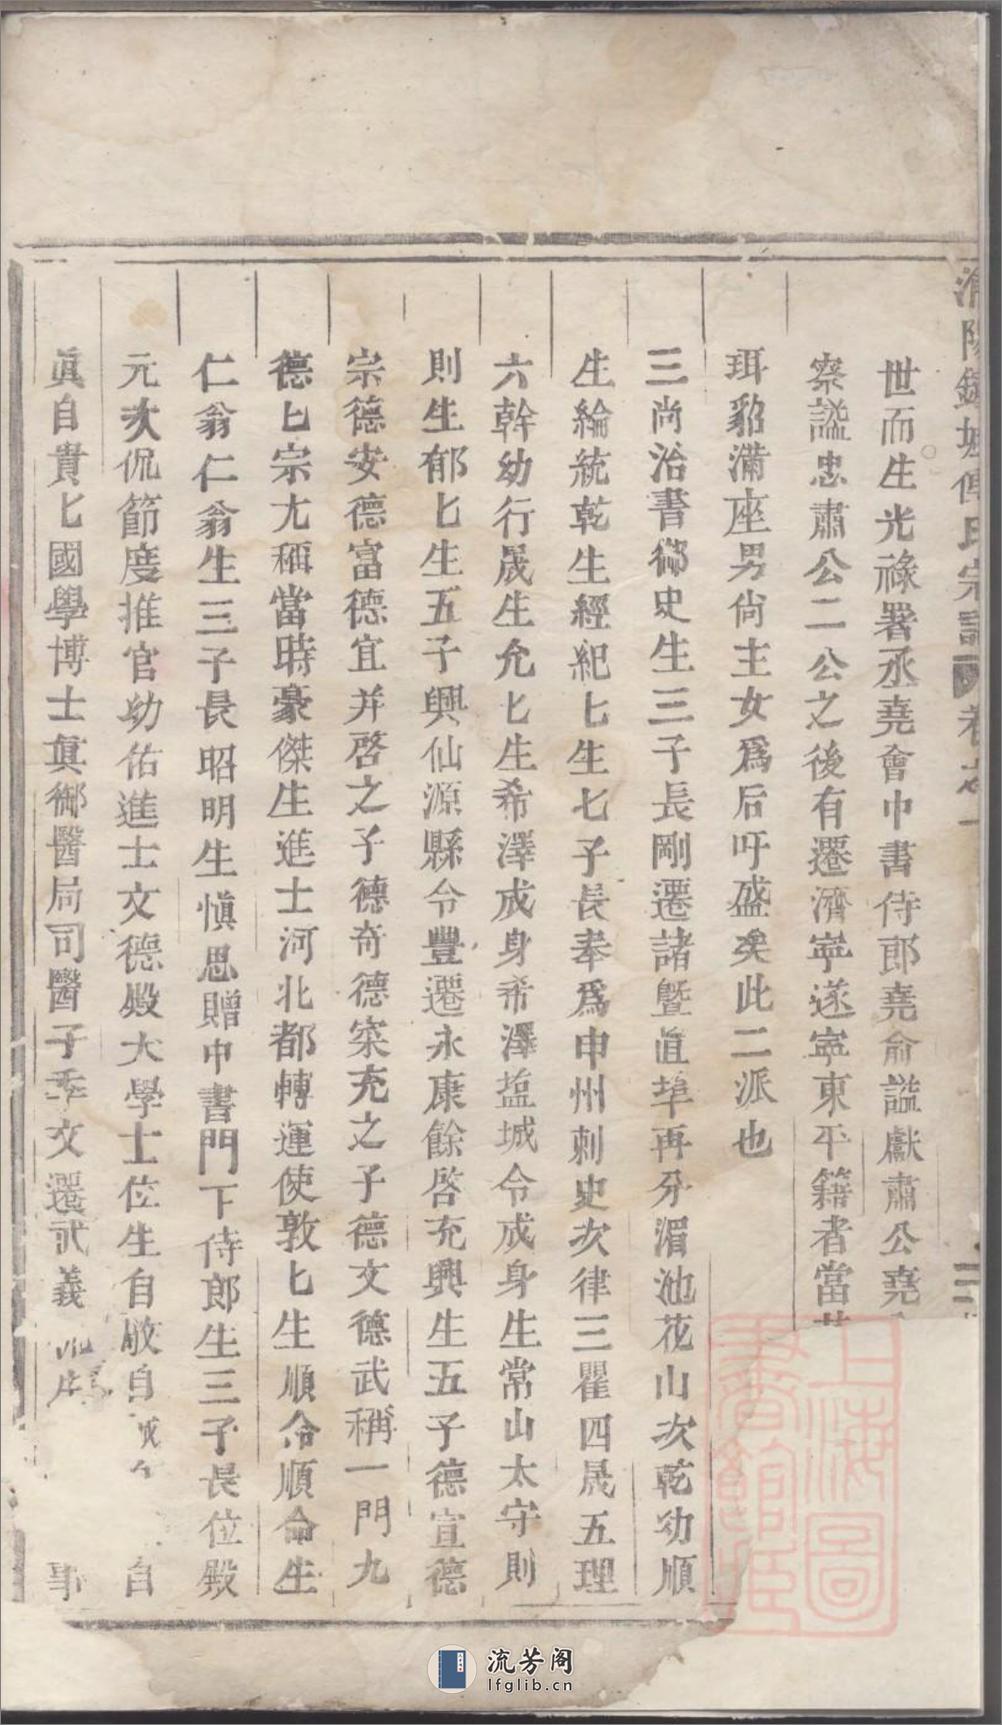 世而生光祿署丞堯會中書侍郎堯俞謚獻肅公堯
察謚忠肅公二公之後有遷濟寧遂寧東平籍者當
珥貂滿座男尚主女爲后吁盛矣此二派也
三尚治書御史生三子長剛遷諸暨直埠再分湄池花山次乾幼順
生綸統乾生經紀七生七子長奉爲申州刺史次律三瞿四晟五理
六幹幼行晟生允匕生希澤成身希澤塩城令成身生常山太守則
則生郁匕生五子興仙源縣令豐遷永康餘啓充興生五子德宣德
宗德安德富德宜并啓之子德奇德寀充之子德文德武稱一門九
德匕宗尤稱當時豪傑生進士河北都轉運使敦匕生順命順命生
仁翁仁翁生三子長昭明生愼思贈中書門下侍郎生三子長位殿
元次侃節度推官幼佑進士文德殿大學士位生自敬自誠 自
眞自貴匕國學博士眞御醫局司醫子季文遷武義 事
氏宗譜 卷之一
上海圖書館藏
流芳阁
lfglib.cn